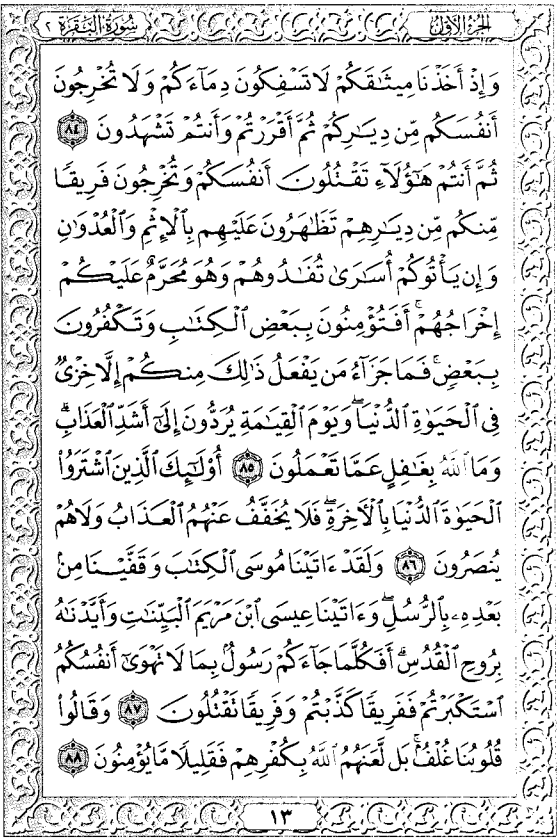 الجزء الأول
سورة البقرة ٢
وَإِذْ أَخَذْنَا مِيثَٰقَكُمْ لَا تَسْفِكُونَ دِمَآءَكُمْ وَلَا تُخْرِجُونَ
أَنفُسَكُم مِّن دِيَٰرِكُمْ ثُمَّ أَقْرَرْتُمْ وَأَنتُمْ تَشْهَدُونَ ٨٤
ثُمَّ أَنتُمْ هَٰٓؤُلَآءِ تَقْتُلُونَ أَنفُسَكُمْ وَتُخْرِجُونَ فَرِيقًا
مِّنكُم مِّن دِيَٰرِهِمْ تَظَٰهَرُونَ عَلَيْهِم بِٱلْإِثْمِ وَٱلْعُدْوَٰنِ
وَإِن يَأْتُوكُمْ أُسَٰرَىٰ تُفَٰدُوهُمْ وَهُوَ مُحَرَّمٌ عَلَيْكُمْ
إِخْرَاجُهُمْ ۚ أَفَتُؤْمِنُونَ بِبَعْضِ ٱلْكِتَٰبِ وَتَكْفُرُونَ
بِبَعْضٍ ۚ فَمَا جَزَآءُ مَن يَفْعَلُ ذَٰلِكَ مِنكُمْ إِلَّا خِزْىٌ
فِى ٱلْحَيَوٰةِ ٱلدُّنْيَا ۖ وَيَوْمَ ٱلْقِيَٰمَةِ يُرَدُّونَ إِلَىٰٓ أَشَدِّ ٱلْعَذَابِ ۗ
وَمَا ٱللَّهُ بِغَٰفِلٍ عَمَّا تَعْمَلُونَ ٨٥ أُو۟لَٰٓئِكَ ٱلَّذِينَ ٱشْتَرَوُا۟
ٱلْحَيَوٰةَ ٱلدُّنْيَا بِٱلْءَاخِرَةِ ۖ فَلَا يُخَفَّفُ عَنْهُمُ ٱلْعَذَابُ وَلَا هُمْ
يُنصَرُونَ ٨٦ وَلَقَدْ ءَاتَيْنَا مُوسَى ٱلْكِتَٰبَ وَقَفَّيْنَا مِنۢ
بَعْدِهِۦ بِٱلرُّسُلِ ۖ وَءَاتَيْنَا عِيسَى ٱبْنَ مَرْيَمَ ٱلْبَيِّنَٰتِ وَأَيَّدْنَٰهُ
بِرُوحِ ٱلْقُدُسِ ۗ أَفَكُلَّمَا جَآءَكُمْ رَسُولٌۢ بِمَا لَا تَهْوَىٰٓ أَنفُسُكُمُ
ٱسْتَكْبَرْتُمْ فَفَرِيقًا كَذَّبْتُمْ وَفَرِيقًا تَقْتُلُونَ ٨٧ وَقَالُوا۟
قُلُوبُنَا غُلْفٌۢ ۚ بَل لَّعَنَهُمُ ٱللَّهُ بِكُفْرِهِمْ فَقَلِيلًا مَّا يُؤْمِنُونَ ٨٨
١٣